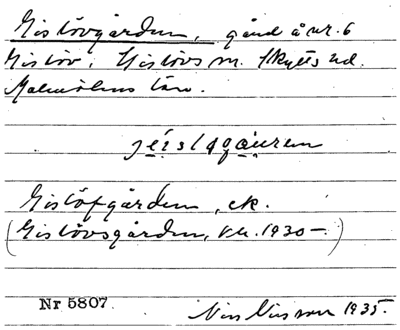 Gislövgården, gård å nr. 6
Gislöv, Gislövs sn. Skytts hd.
Malmöhus län.
jéi̯slagɑ̀u̯ren
Gislöfgården, ek.
(Gislövsgården, kk. 1930–)
Nr 5807. Nils Nilsson 1935.